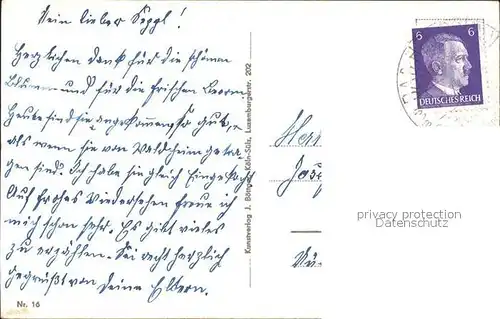 Mein lieber Seppl!
Herzlichen Dank für die schönen
Blumen und für die frischen
Heute sind sie angekommen so gut,
als wenn sie von Waldheim getra-
gen sind. Ich habe sie gleich eingekocht
Auf frohes Wiedersehen freue ich
mich schon sehr. Es gibt vieles
zu erzählen. Sei recht herzlich
gegrüßt von Deine Eltern.
Nr. 16
Kunstverlag J. Böttger, Köln-Sülz, Luxemburgerstr. 202
6 6
DEUTSCHES REICH
Herr
privacy protection
Datenschutz